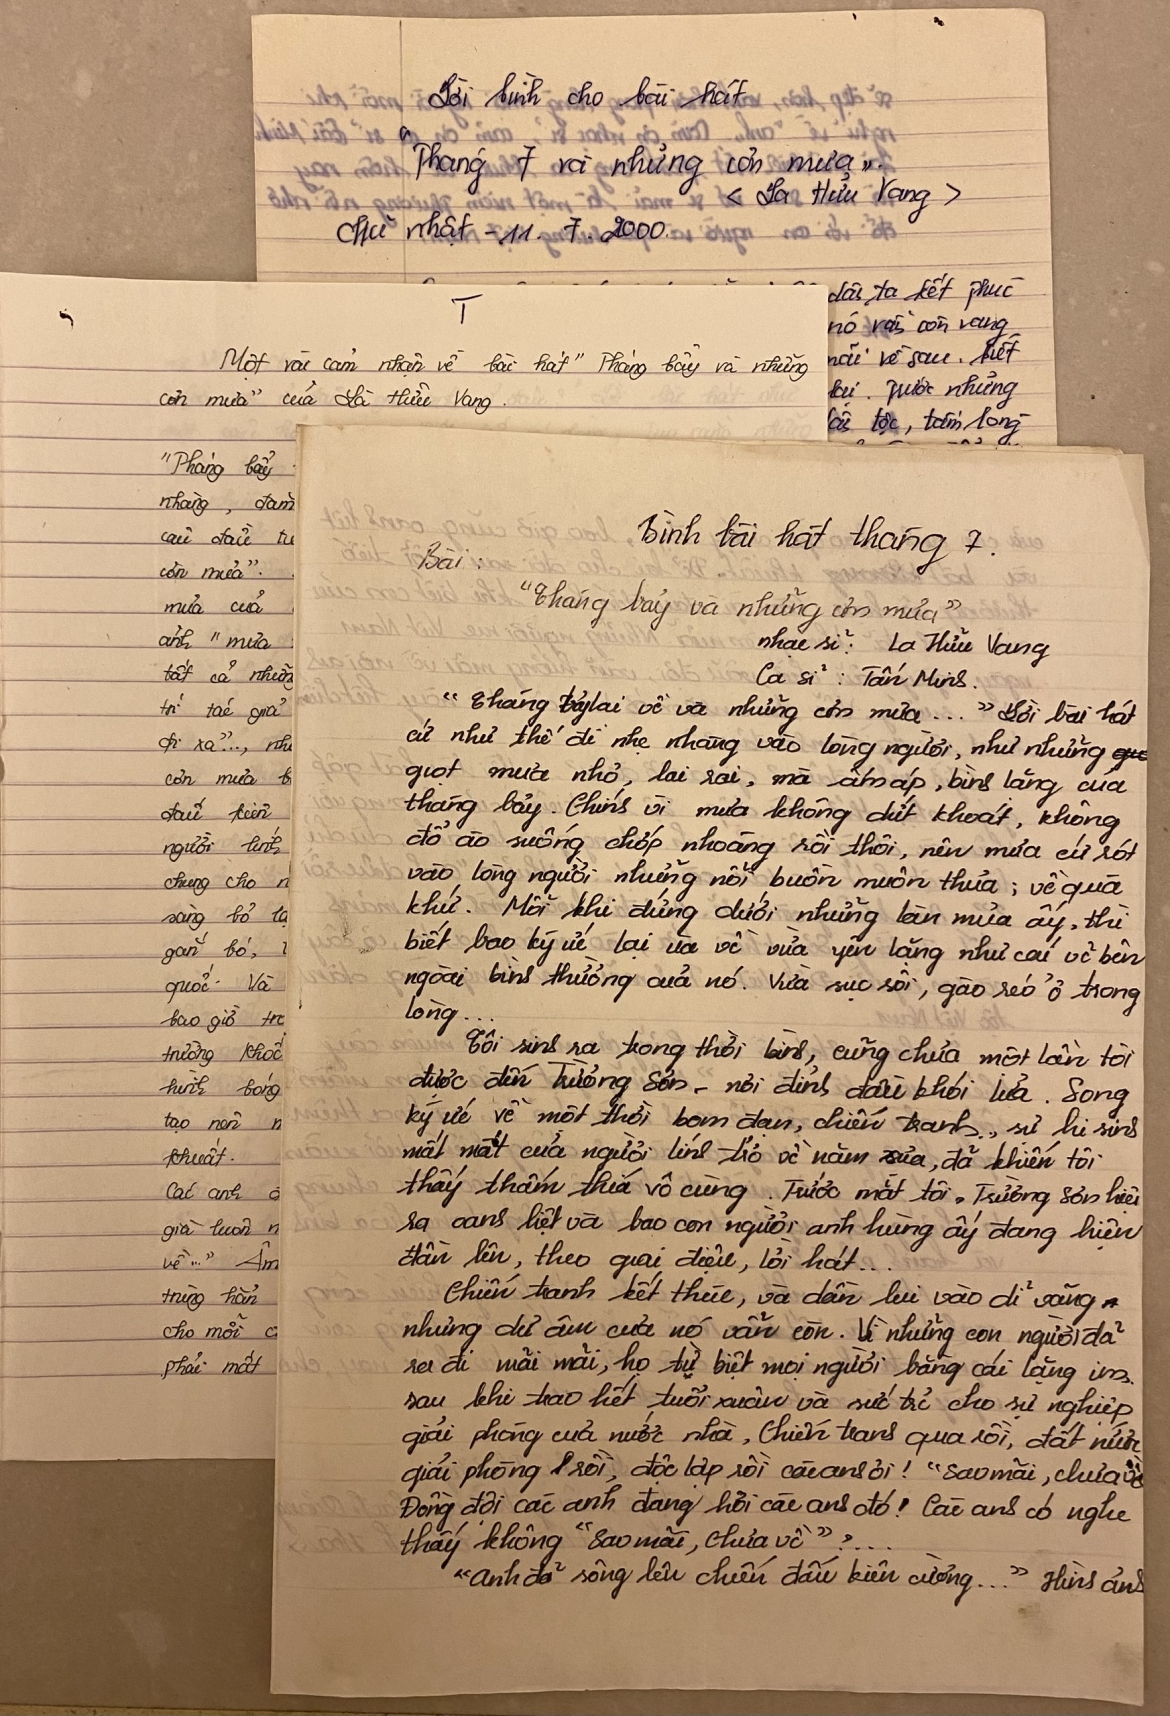 Lời bình cho bài hát
"Tháng 7 và những cơn mưa".
< La Hữu Vang >
Chủ nhật - 11. 7. 2000.
dân ta kết thúc
nó vẫn còn vang
mãi về sau. biết
lại. Trước những
dân tộc, tấm lòng
T
Một vài cảm nhận về bài hát "Tháng bẩy và những
cơn mưa" của Lã Hữu Vang.
"Tháng bẩy
nhàng, đằm
câu đầu từ
cơn mưa".
mưa của
ảnh "mưa
tất cả những
trí tác giả
đi xa"..., như
cơn mưa b
đấu kiên
người lính
chung cho n
sàng bỏ lạ
gắn bó, t
quốc. Và
bao giờ tr
trường khốc
hình bóng
tạo nên n
khuất.
Các anh đ
già luôn n
về..." Âm
trùng hằn
cho mỗi c
phải mất
Bình bài hát tháng 7.
Bài:
"Tháng bảy và những cơn mưa"
nhạc sĩ: La Hữu Vang
Ca sĩ: Tấn Minh.
"Tháng bảy lại về và những cơn mưa..." Lời bài hát
cứ như thế đi nhẹ nhàng vào lòng người, như những
giọt mưa nhỏ, lai rai, mà ấm áp, bình lặng của
tháng bảy. Chính vì mưa không dứt khoát, không
đổ ào xuống chớp nhoáng rồi thôi, nên mưa cứ rót
vào lòng người những nỗi buồn muôn thưa; về quá
khứ. Mỗi khi đứng dưới những làn mưa ấy, thì
biết bao ký ức lại ùa về vừa yên lặng như cái vẻ bên
ngoài bình thường của nó. Vừa sục sôi, gào réo ở trong
lòng...
Tôi sinh ra trong thời bình, cũng chưa một lần tôi
được đến Trường Sơn - nơi đỉnh đầu khói lửa. Song
ký ức về một thời bom đạn, chiến tranh.., sự hi sinh
mất mát của người lính trở về năm xưa, đã khiến tôi
thấy thấm thía vô cùng. Trước mắt tôi. Trường Sơn hiện
ra oanh liệt và bao con người anh hùng ấy đang hiện
dần lên, theo giai điệu, lời hát...
Chiến tranh kết thúc, và dần lui vào dĩ vãng,
nhưng dư âm của nó vẫn còn. Vì những con người đã
ra đi mãi mãi, họ từ biệt mọi người bằng cái lặng im.
sau khi trao hết tuổi xuân và sức trẻ cho sự nghiệp
giải phóng của nước nhà, Chiến tranh qua rồi, đất nước
giải phóng rồi, độc lập rồi các anh ơi! "Sao mãi, chưa về
Đồng đội các anh đang hỏi các anh đó! Các anh có nghe
thấy không "Sao mãi, chưa về"?....
"Anh đã sống lên chiến đấu kiên cường..." Hình ảnh